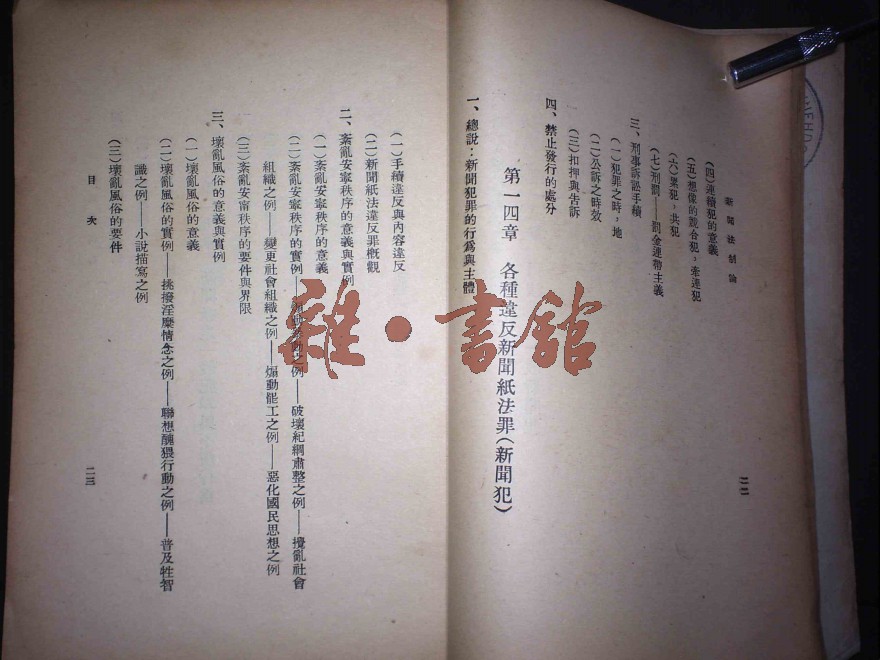 新聞法制論
(四)連續犯的意義
(五)想像的競合犯,牽連犯
(六)累犯,共犯
(七)刑罰——罰金連帶主義
三、刑事訴訟手續
(一)犯罪之時,地
(二)公訴之時效
(三)扣押與告訴
四、禁止發行的處分
第一四章 各種違反新聞紙法罪(新聞犯)
一、總說:新聞犯罪的行爲與主體
二二
(一)手續違反與內容違反
(二)新聞紙法違反罪概觀
二、紊亂安寧秩序的意義與實例
(一)紊亂安寧秩序的意義
(二)紊亂安寧秩序的實例——之例——破壞紀綱肅整之例——攪亂社會
組織之例——變更社會組織之例——煽動罷工之例——惡化國民思想之例
(三)紊亂安甯秩序的要件與界限
三、壞亂風俗的意義與實例
(一)壞亂風俗的意義
(二)壞亂風俗的實例——挑撥淫靡情念之例——聯想醜猥行動之例——普及性智
識之例——小說描寫之例
(三)壞亂風俗的要件
目次
二三
雜·書館